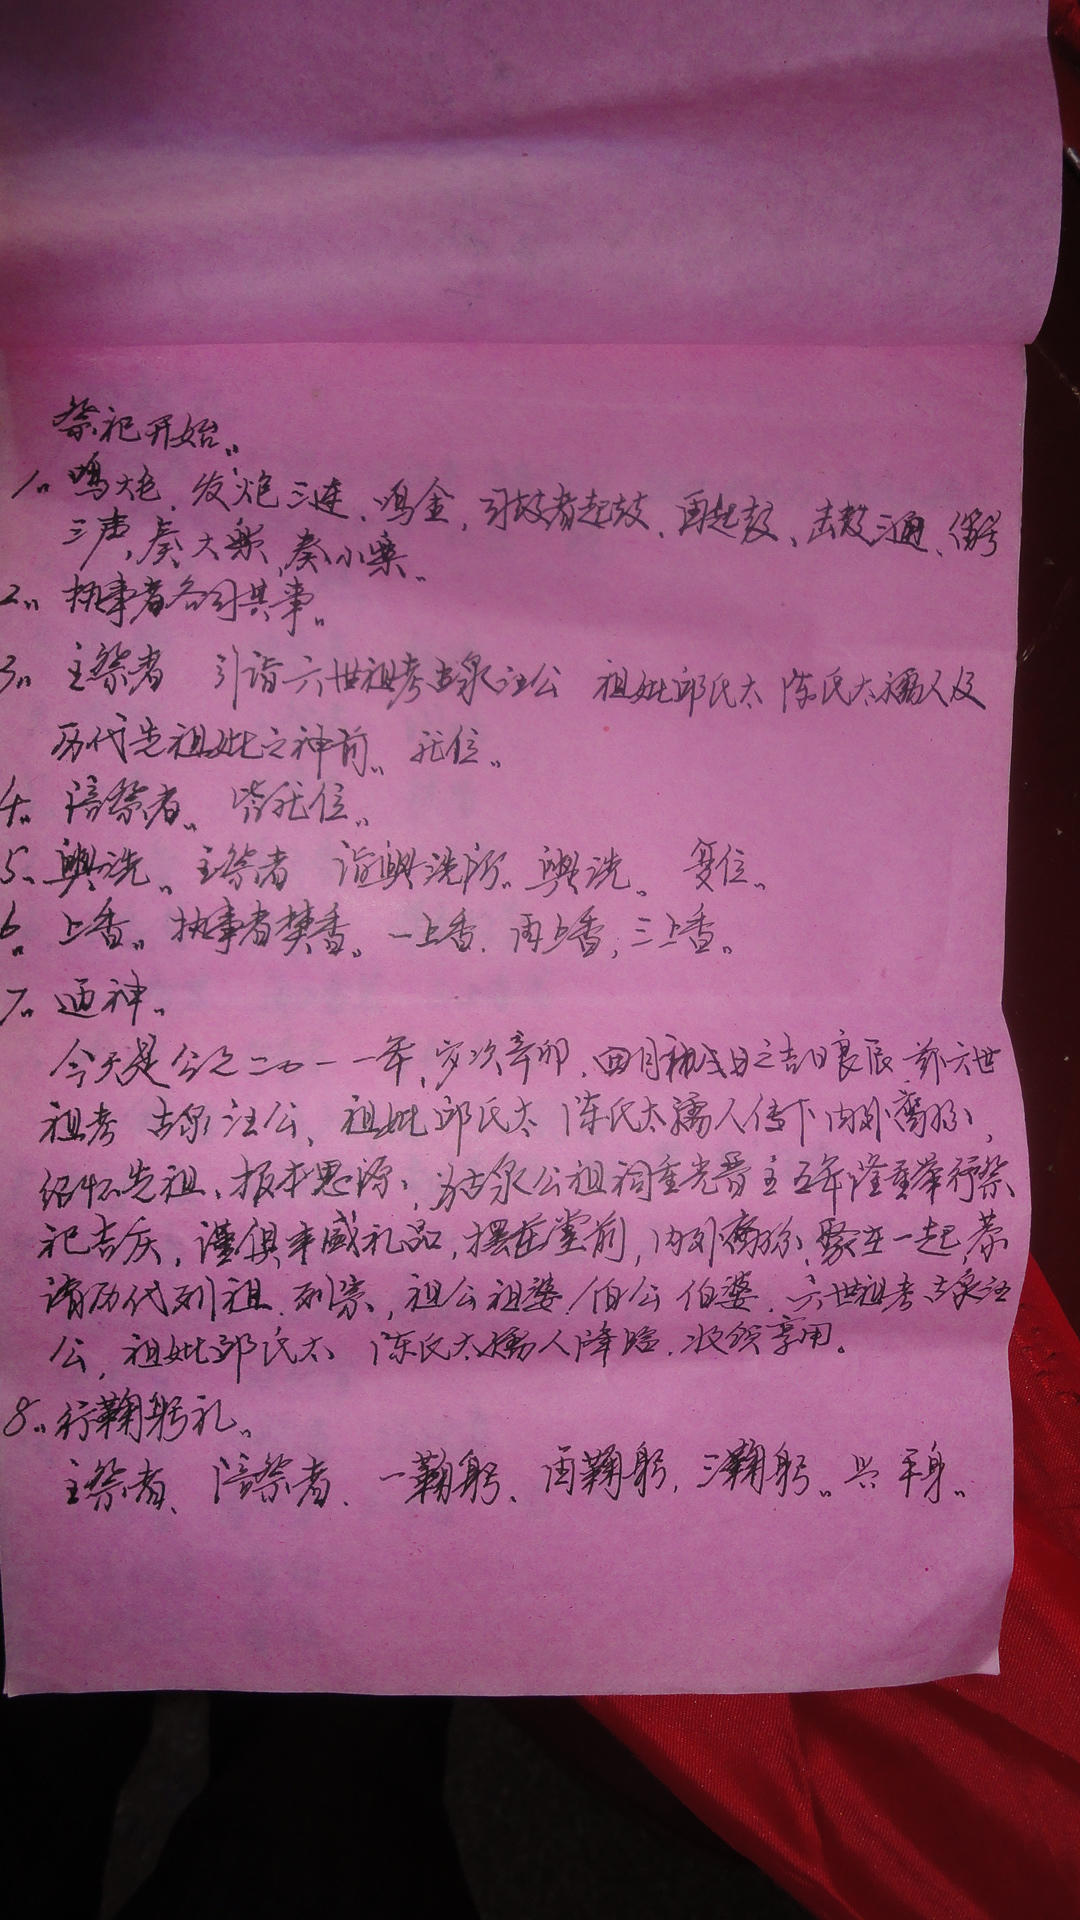 祭祀开始。
1. 鸣炮、发炮三连、鸣金,司鼓者起鼓、再起鼓、击鼓三通、
三声,奏大乐,奏小乐。
2. 执事者各司其事。
3. 主祭者 引诣六世祖考古泉汪公 祖妣邱氏太 陈氏太孺人及
历代先祖妣之神前。就位。
4. 陪祭者。皆就位。
5. 洗。主祭者 诣 洗所。 洗。 复位。
6. 上香。执事者焚香。一上香、再上香,三上香。
7. 通神。
今天是公元二0一一年,岁次辛卯,四月 日之吉日良辰 六世
祖考 古泉汪公、祖妣邱氏太 陈氏太孺人传下内外裔孙,
怀先祖、报本思源,为古泉公祖祠重光晋主五年隆重举行祭
祀吉庆,谨具 盛礼品,摆在堂前,内外裔孙,聚在一起,恭
请历代列祖、列宗,祖公祖婆、伯公伯婆、六世祖考古泉汪
公,祖妣邱氏太 陈氏太孺人降临、收领享用。
8. 行鞠躬礼。
主祭者、陪祭者、一鞠躬、再鞠躬,三鞠躬。兴 平身。